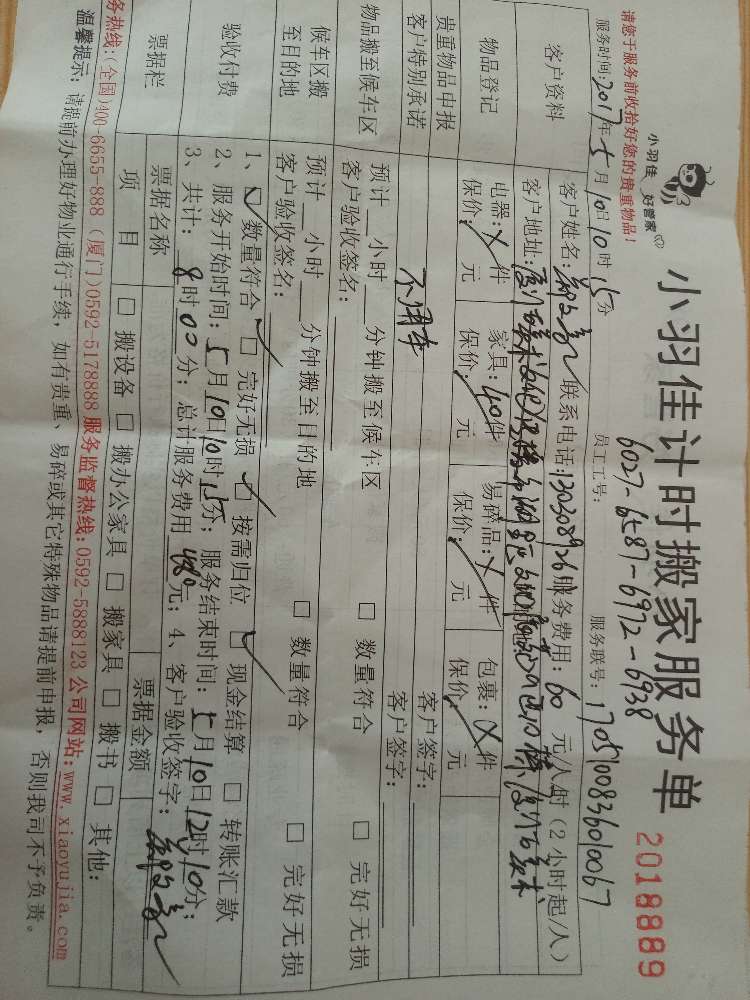 小羽佳 好管家
小羽佳计时搬家服务单
2018889
请您于服务前收拾好您的贵重物品！
6027-6587-6972-6938
服务时间: 2017年5月10日10时15分 员工工号: 服务联号: 1705100836010067
客户资料
客户姓名: 联系电话: 服务费用: 60 元/人/时（2小时起/人）
客户地址:
物品登记
电器: 件 家具: 40件 易碎品: 件 包裹: 件
保价: 元 保价: 元 保价: 元 保价: 元
贵重物品申报 客户签字:
客户特别承诺 客户签字:
物品搬至候车区
预计 小时 分钟搬至候车区 □ 数量符合 □ 完好无损
客户验收签名:
候车区搬至目的地
预计 小时 分钟搬至目的地 □ 数量符合 □ 完好无损
客户验收签名:
验收付费
1、□ 数量符合 □ 完好无损 □ 按需归位 □ 现金结算 □ 转账汇款
2、服务开始时间: 5月10日10时15分; 服务结束时间: 5月10日12时10分;
3、共计: 8时00分; 总计服务费用 480元; 4、客户验收签字:
票据栏
票据名称 票据金额
项 目 □ 搬设备 □ 搬办公家具 □ 搬家具 □ 搬书 □ 其他:
务热线:(全国)400-6655-888 (厦门)0592-5178888 服务监督热线:0592-5888123 公司网站:www.xiaoyujia.com
温馨提示: 请提前办理好物业通行手续，如有贵重、易碎或其它特殊物品请提前申报，否则我司不予负责。